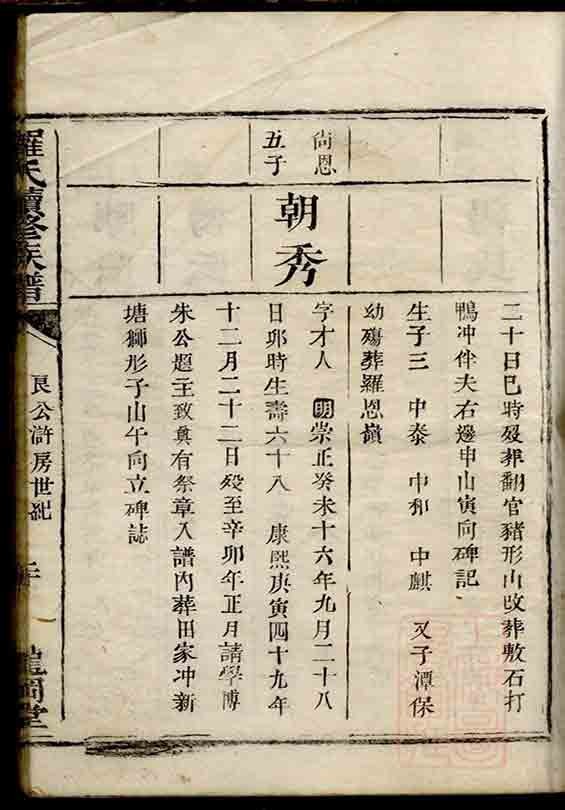 二十日巳時歿葬翻官豬形山改葬敷石打
鴨冲伴夫右邊申山寅向碑記
生子三 中泰 中和 中麒 又子潭保
幼殤葬羅恩嶺
尙恩
五子
朝秀
字才人 明崇正癸未十六年九月二十八
日卯時生壽六十八 康熙庚寅四十九年
十二月二十二日歿至辛卯年正月請學博
朱公題主致奠有祭章入譜內葬田家冲新
塘獅形子山午向立碑誌
羅氏續修族譜
艮公滸房世紀
龍岡堂